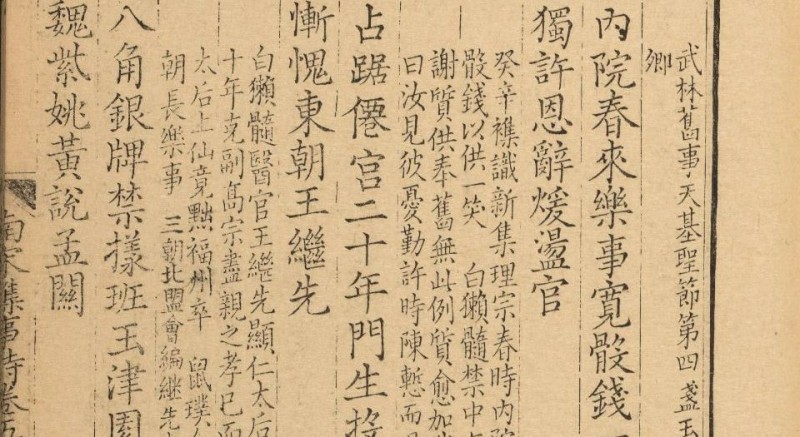 武林舊事天基聖節第四盞玉
卿
內院春來樂事寛骰錢
獨許恩辭煖盪官
癸辛襍識新集理宗春時內院
骰錢以供一笑 白獺髓禁中
謝質供奉舊無此例質愈加
曰汝見彼憂勤許時陳慙而
占踞僊宮二十年門生
慚愧東朝王繼先
白獺髓醫官王繼先顯仁太后
十年克副高宗盡親之孝已而
太后上仙竟黜福州卒 鼠璞
朝長樂事 三朝北盟會編繼先
八角銀牌禁㨾班玉津園
魏紫姚黃說孟闗
南宋襍事詩卷五